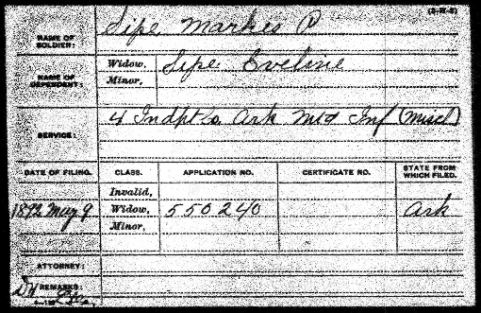 (3-W-2)
NAME OF SOLDIER: Sipe Markes P
NAME OF DEPENDENT: Widow, Sipe Eveline
Minor,
SERVICE: 4 Indpt Co Ark Mtd Inf (Miscl)
DATE OF FILING. CLASS. APPLICATION NO. CERTIFICATE NO. STATE FROM WHICH FILED.
Invalid,
1892 May 9 Widow, 550240 Ark
Minor,
ATTORNEY:
REMARKS: